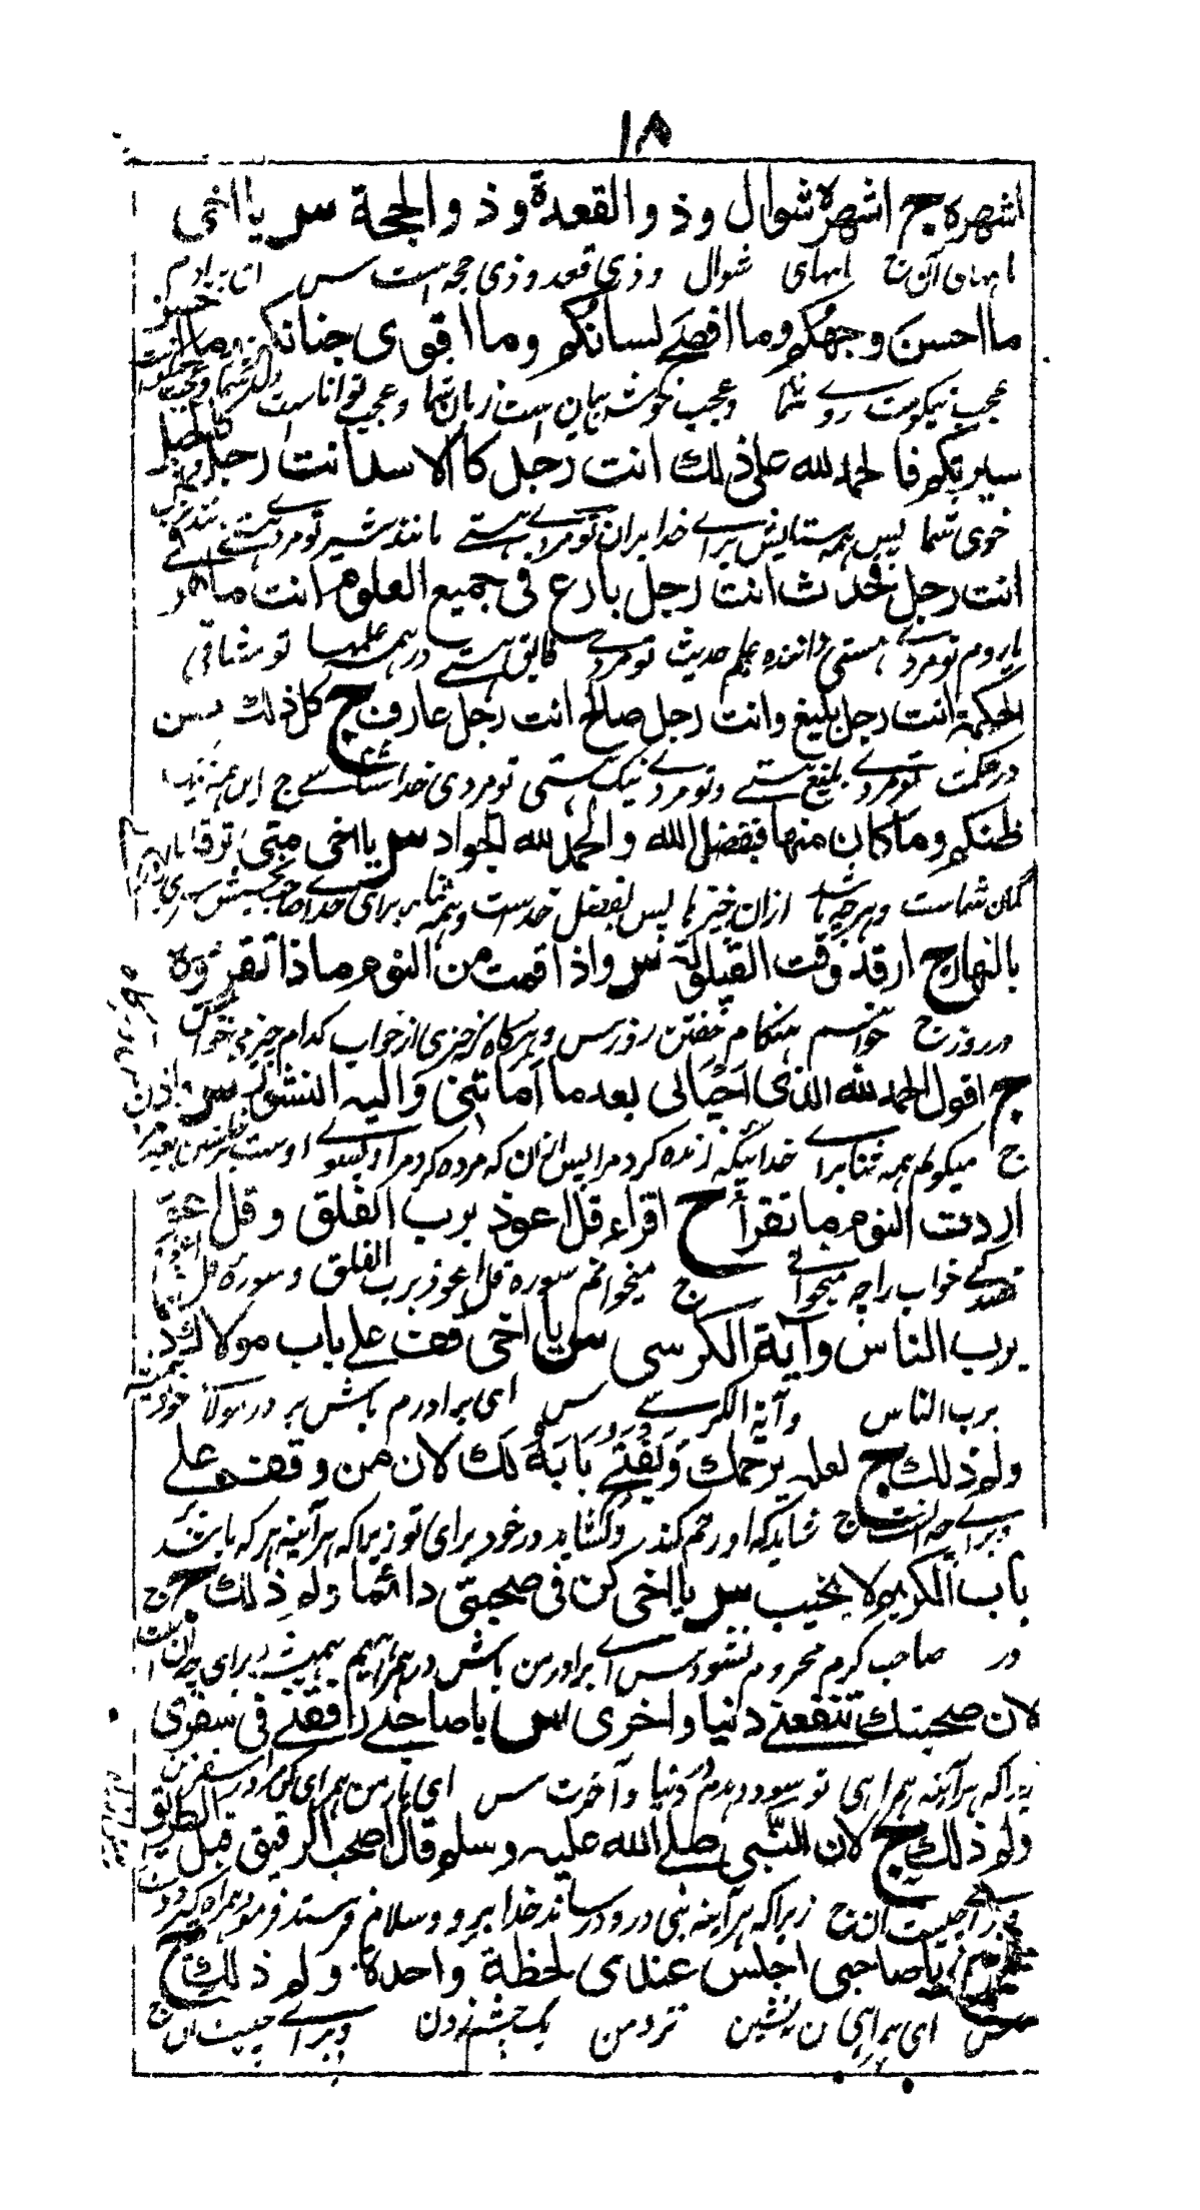 ١٨
اشهره ج اشهره شوال وذ والقعدة وذ والحجة س يا اخى
ماههای آن ج ماههای شوال وذی قعد وذی حجه است س ای برادرم
ما احسن وجهكم وما افصح لسانكم وما اقوى جنانكم وما احسن
عجب نیکوست روے شما وعجب خوش بیان است زبان شما وعجب توانا است دل شما
سيرتكم فا لحمد لله على ذلك انت رجل كالاسد انت رجل كالجبل
خوی شما پس همه ستایش براے خدا بران تو مردے هستے مانند شیر تو مردے هستے
انت رجل محدث انت رجل بارع فى جميع العلوم انت ماهر
تو مردے هستی داننده علم حدیث تو مردے فایق هستے در همه علمها تو مشاقی
الحكمة انت رجل بليغ وانت رجل صالح انت رجل عارف ج كل ذلك حسن
در حکمت تو مردے بلیغ هستے وتو مردے نیک هستی تو مردی خداشناسے ج این همه نیک
ظنكم وما كان منها فبفضل الله والحمد لله الجواد س يا اخى متى ترقد
گمان شماست وهرچه باشد ازان چیزها پس بفضل خداست وهمه ثنا برای خداے صاحب بخشش س
بالنهار ج ارقد وقت القيلولة س واذا قمت من النوم ماذا تقرءوه
در روز ج خوابم هنگام خفتن روز س وهرگاه که خیزی از خواب کدام چیز می خوانی
ج اقول الحمد لله الذى احيانى بعد ما اماتنى واليه النشور س واذا
ج میگویم همه ثنا براے خدائیکه زنده کرد مرا پس ازان که مرده کرد مرا وبسوے اوست
اردت النوم ما تقرأ ج اقراء قل اعوذ برب الفلق وقل اعوذ
قصد کے خواب را چه میخوانے ج میخوانم سوره قل اعوذ برب الفلق وسوره قل اعوذ
برب الناس وآية الكرسى س يا اخى قف على باب مولاك
برب الناس وآیة الکرسے س ای برادرم باش بر در مولاۓ خود
ولم ذلك ج لعله يرحمك ويفتح بابه لك لان من وقف على
وبراے چه است ج شاید که او رحم کند وگشاید در خود برای تو زیرا که هرآینه هر که باشد
باب الكريم لا يخيب س يا اخى كن فى صحبتى دائما ولم ذلك ج
در صاحب کرم محروم نشود س اے برادر من باش در همراهیم همیشه برای چه
لان صحبتك تنفعنے دنيا واخرى س يا صاحبے رافقنے فى سفرى
زیرا که هرآینه همراهی تو سود دهدم در دنیا وآخرت س ای یار من همراهی کن مرا در سفر من
ولم ذلك ج لان النبى صلے الله عليه وسلم قال اصحب الرفيق قبل الطريق
وبراے چیست آن ج زیرا که هرآینه نبی درود رساند خدا برو وسلام فرستد فرمود همراه گیر
يا صاحبى اجلس عندى لحظة واحدة ولم ذلك ج
س ای همراهی من بنشین نزد من یک چشم زدن وبراے چیست آن ج